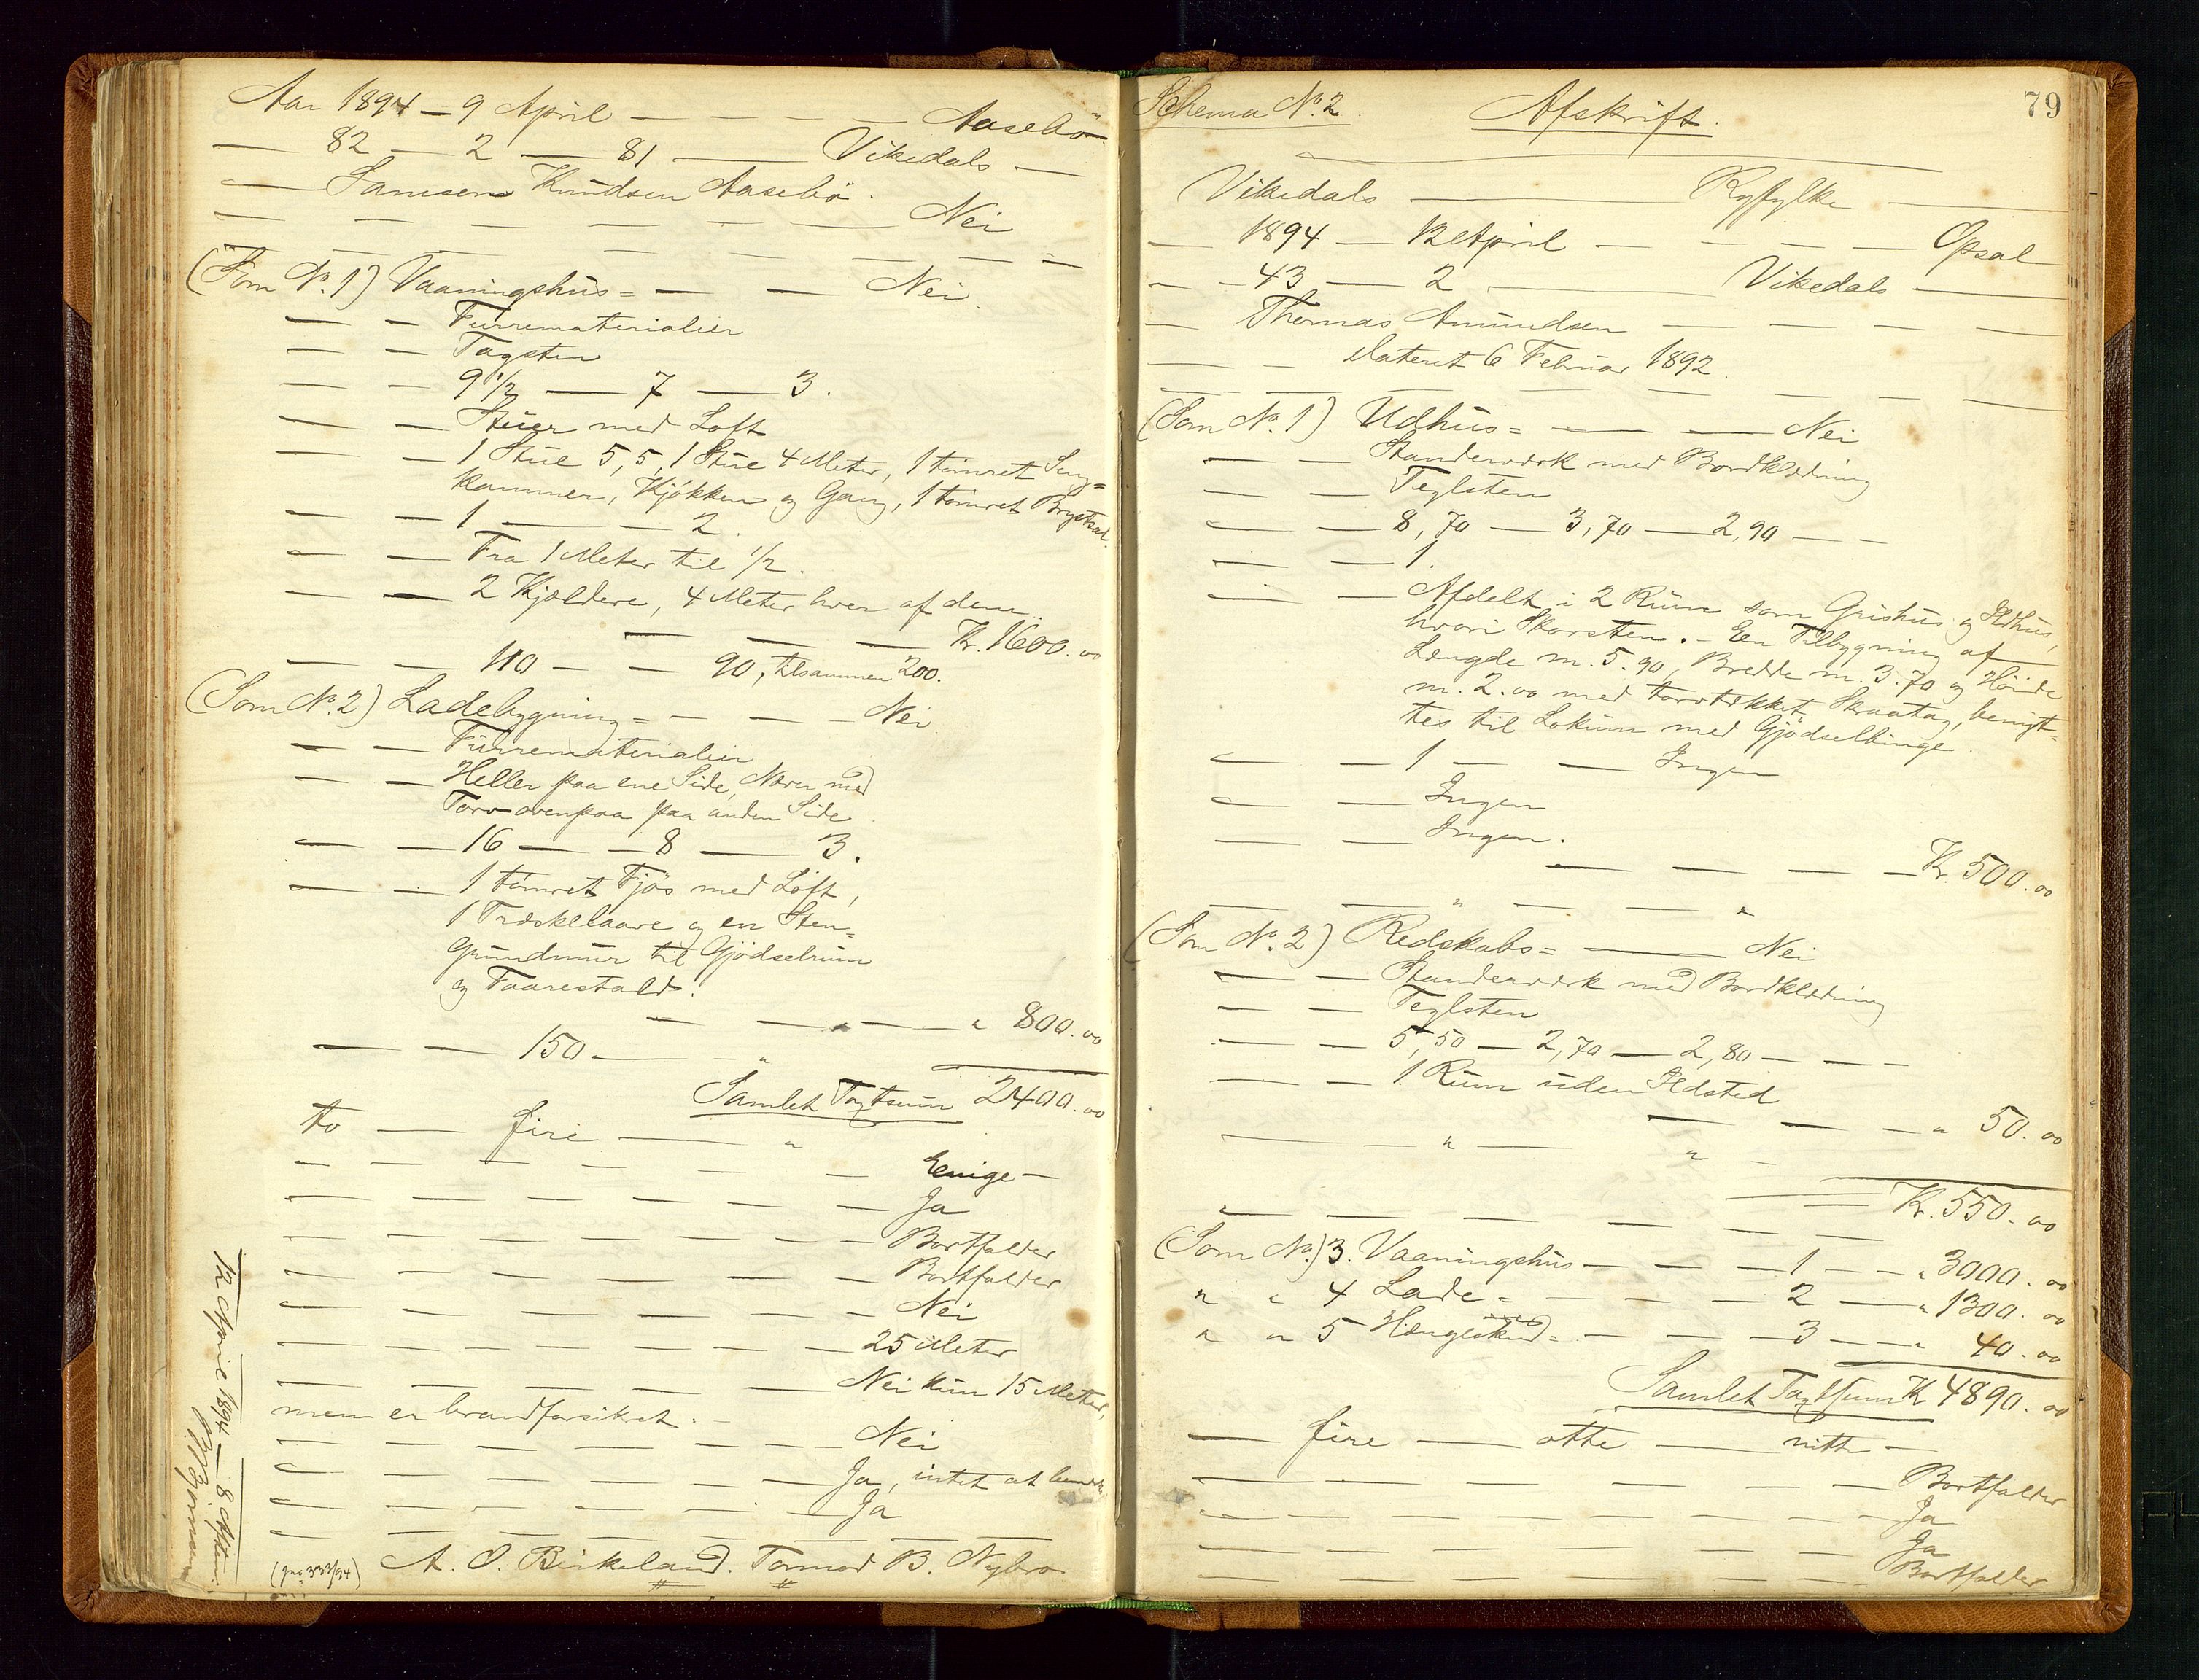 Aar 1894 — 9 April — — — — Aasebø
— 82 — 2 — 81 — Vikedals —
— Samson Knudsen Aasebø.
— — — — — — Nei
— — — — — — — —
(Som No. 1) Vaaningshus = — — Nei.
— — Furrematerialier
— — Tagsten
— — 9 1/2 — 7 — 3.
— — Stuer med Loft
— — 1 Stue 5,5, 1 Stue 4 Meter, 1 tömret Seng=
kammer, Kjökken og Gang, 1 tömret
— — 1 — — 2
— — Fra 1 Meter til 1/2.
— — 2 Kjældere, 4 Meter hver af dem.
— — — Kr. 1600.00
— — 110 — — 90, tilsammen 200.
(Som No. 2) Ladebygning = — — — Nei
— — Furrematerialier
— — Heller paa ene Side, Never med
Torv ovenpaa paa anden Side
— — 16 — — 8 — 3.
— — 1 tömret Fjös med Loft,
1 Træskelaave og en Sten=
Grundmur til Gjödselrum
og Faarestald.
— — " — — " 800.00
— — 150 — — "
Samlet Taxtsum 2400.00
to — fire — "
— — — — — — Enige —
— — — — — — Ja
— — — — — — Bortfalder
— — — — — — Bortfalder
— — — — — — Nei
— — — — — — 25 Meter
— — — — — Nei kun 15 Meter,
men er brandforsikret. —
— — — — — — Nei
— — — — — — Ja, intet at
— — — — — — Ja
— — — — — — — —
(Jno 333/94) A. O. Birkeland. Tormod B. Nybro
12 April 1894 — 8 Aften
79
Schema No. 2. Afskrift.
Vikedals — Ryfylke —
— 1894 — 12 April — — — — Opsal
— — 43 — 2 — Vikedals —
— Thomas Amundsen — — — —
— — dateret 6 Februar 1892.
— — — — — — — —
(Som No. 1) Udhus = — — Nei
— — Standerværk med Bordklædning
— — Teglsten
— — 8,70 — 3,70 — 2,90 — —
— — 1.
— — Afdelt i 2 Rum som Grishus og Ildhus,
hvori Skorsten. — En Tilbygning af
Længde m. 5.90, Bredde m. 3.70 og Höide
m. 2.00 med torvtækket Skraatag, benyt=
tes til Lokum med Gjödselbinge.
— — 1 — — Ingen
— — Ingen
— — Ingen.
— — — — Kr. 500.00
— — " — — "
(Som No. 2) Redskabs = — Nei
— — Standerværk med Bordklædning
— — Teglsten
— — 5,50 — 2,70 — 2,80 — — —
— — 1 Rum uden Ildsted
— — — " 50.00
— — " — — " —
Kr. 550.00
— — — — — — —
(Som No.) 3. Vaaningshus — — — 1 — — " 3000.00
" " 4 Lade = — — — 2 — " 1300.00
" " 5 — — — 3 — " 40.00
Samlet Taxtsum K 4890.00
— fire — otte — nitti —
— — — — — — Bortfalder
— — — — — — Ja
— — — — — — Ja
— — — — — — Bortfalder